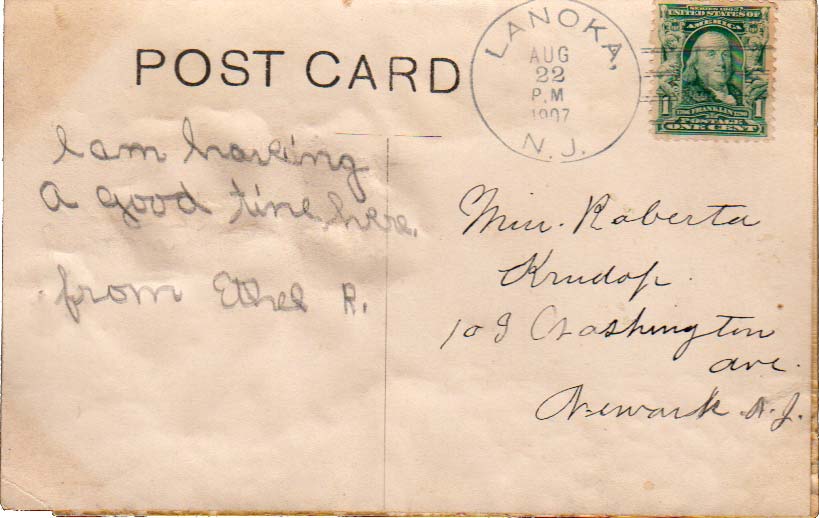 POST CARD
LANOKA,
AUG
22
P.M
1907
N. J.
SERIES 1902
UNITED STATES OF
AMERICA
1 1706 FRANKLIN 1790 1
POSTAGE
ONE CENT
I am haveing
a good time here.
from Ethel R.
Miss. Roberta
Krudop
109 Washington
ave.
Newark N.J.